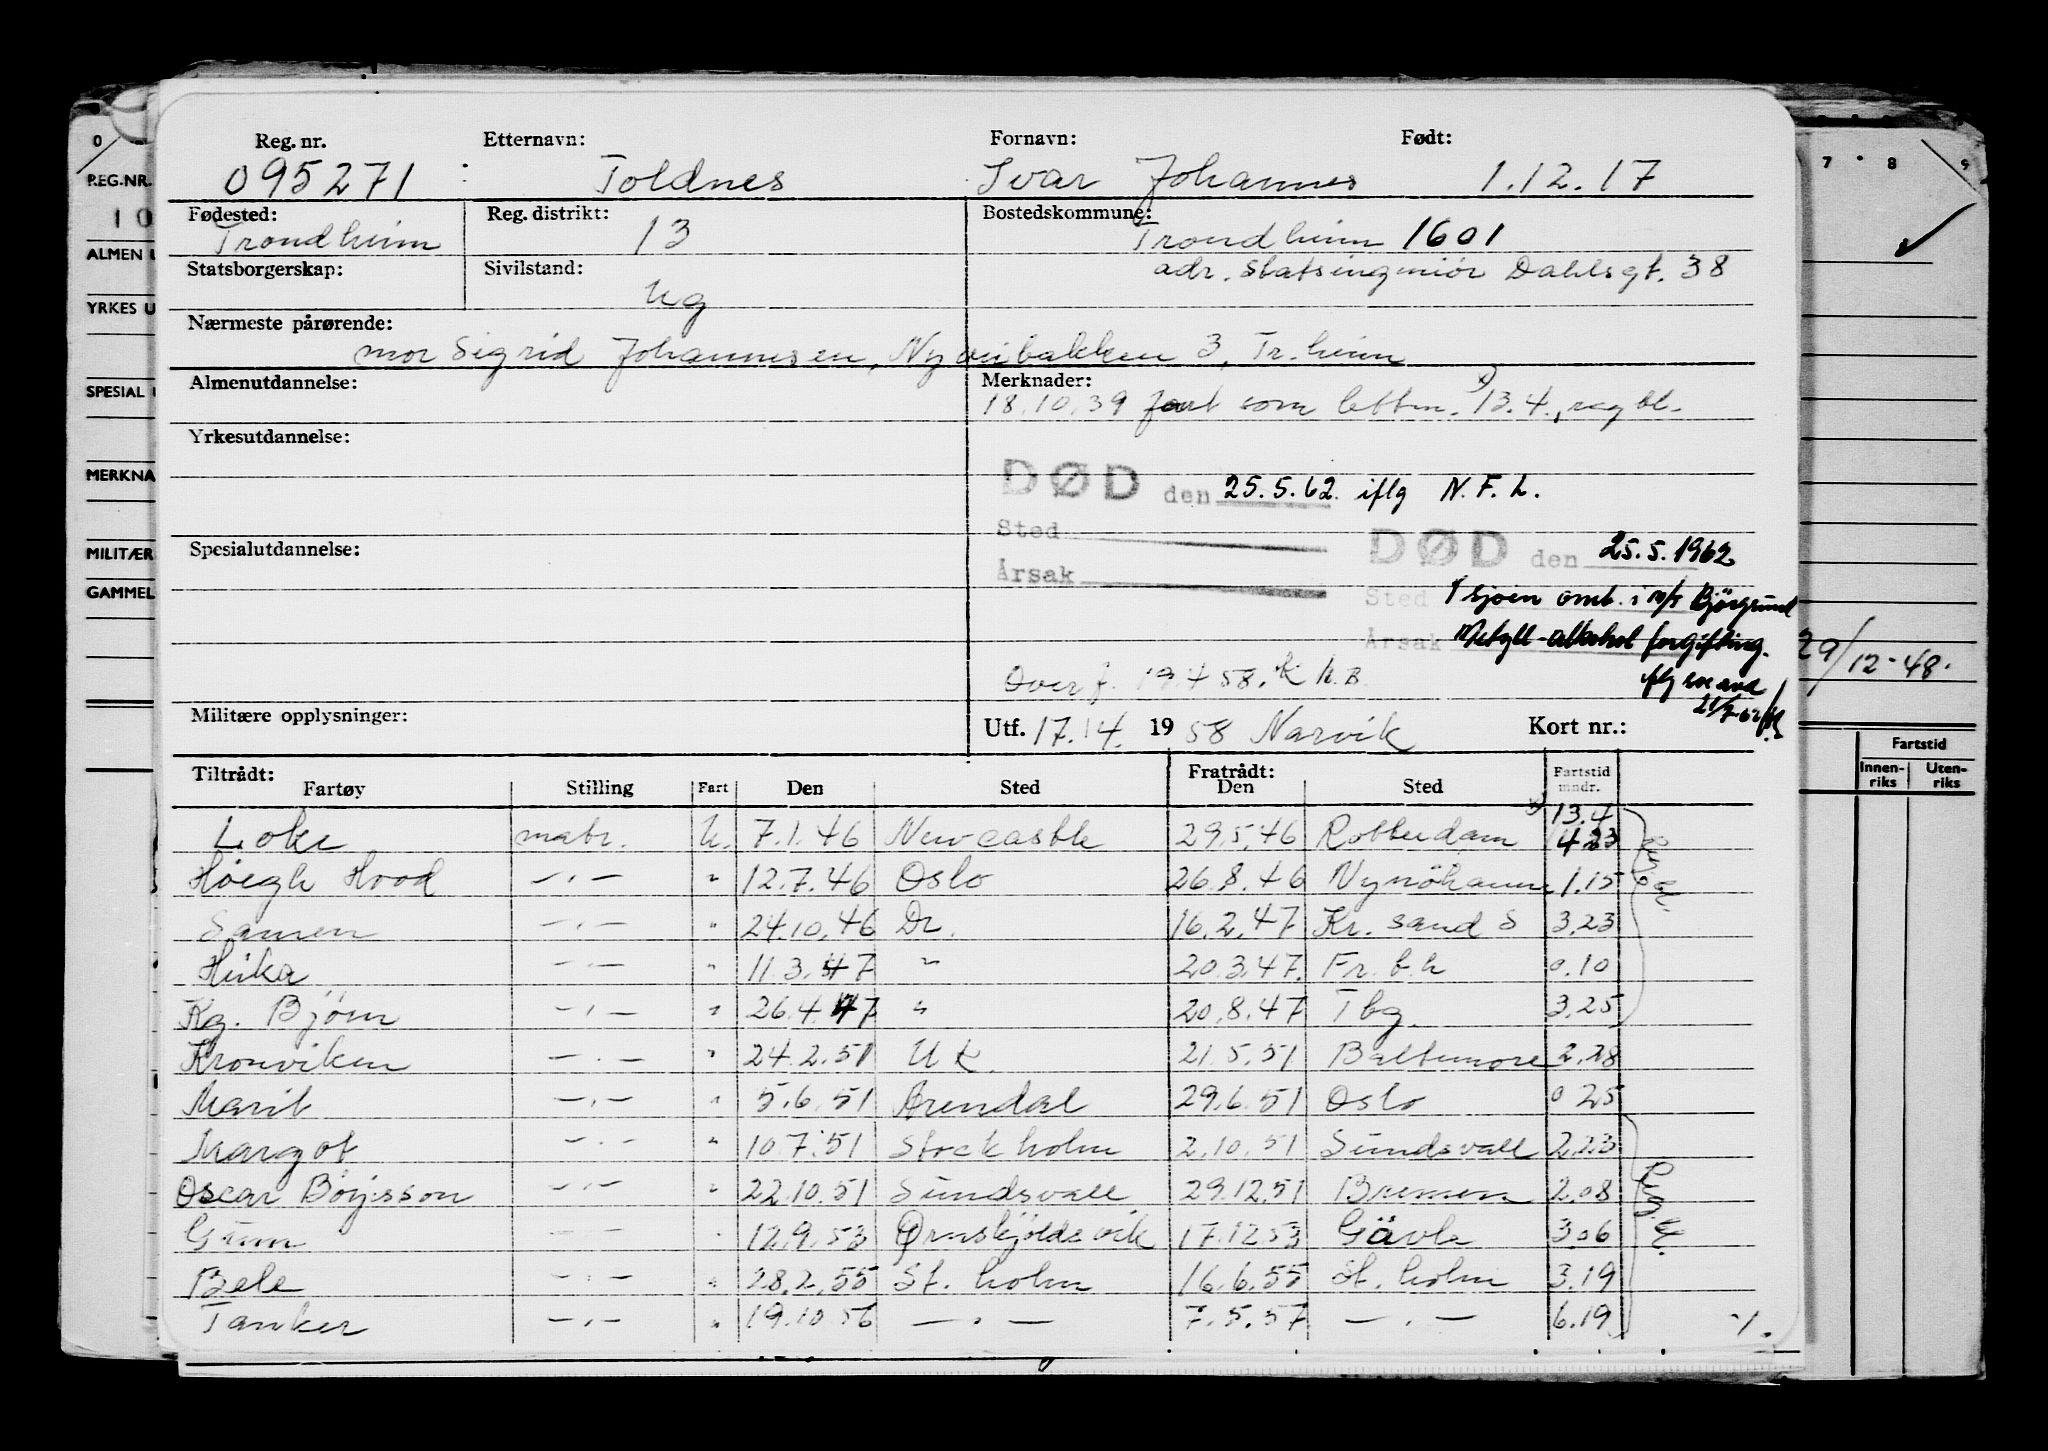 0
7 8 9
REG.NR.
10
ALMEN U
YRKES U
SPESIAL
MERKNA
MILITÆR
GAMMEL
29/12-48.
Fartstid
Innen-riks Uten-riks
Reg. nr. Etternavn: Fornavn: Født:
095271 Toldnes Ivar Johannes 1.12.17
Fødested: Reg. distrikt: Bostedskommune:
Trondheim 13 Trondheim 1601
Statsborgerskap: Sivilstand: adr. Statsingeniør Dahlsgt. 38
Ug
Nærmeste pårørende:
mor Sigrid Johannesen, Nyveibakken 3, Tr.heim
Almenutdannelse: Merknader:
18.10.39 fart som lettm. x) 13.4., reg bl.
Yrkesutdannelse:
DØD den 25.5.62. iflg N.F.L.
Sted
Årsak
Spesialutdannelse:
DØD den 25.5.1962
Sted I sjøen omb. i m/s Bjørgsund
Årsak Metyll-alkohol forgiftning.
Overf. 19.4 58.
21/7-62
Militære opplysninger: Utf. 17.14. 1958 Narvik Kort nr.:
Tiltrådt: Fratrådt: Fartstid
Fartøy Stilling Fart Den Sted Den Sted mndr.
x) 13.4
Loke matr. U. 7.1.46 Newcastle 29.5.46 Rotterdam 4 23
Høegh Hood —.— " 12.7.46 Oslo 26.8.46 Nynöhamn 1.15
Samen —.— " 24.10.46 Dr. 16.2.47 Kr. sand S 3.23
Heika —.— " 11.3.47 " 20.3.47. Fr.b.h 0.10
Kg. Bjørn —.— " 26.4.47 " 20.8.47 Tbg. 3.25
Kronviken —.— " 24.2.51 UK. 21.5.51 Baltimore 2.28
Marit —.— " 5.6.51 Arendal 29.6.51 Oslo 0 25
Margot —.— " 10.7.51 Stockholm 2.10.51 Sundsvall 2.23
Oscar Börjesson —.— " 22.10.51 Sundsvall 29.12.51 Bremen 2.08
Gunn —.— " 12.9.53 Ørnskjöldsvik 17.12.53 Gävle 3.06
Bele —.— " 28.2.55 St. holm 16.6.55 St. holm 3.19
Tanker —.— " 19.10 56 —.— 7.5.57 —.— 6.19
Reg. bl.
Reg. bl.